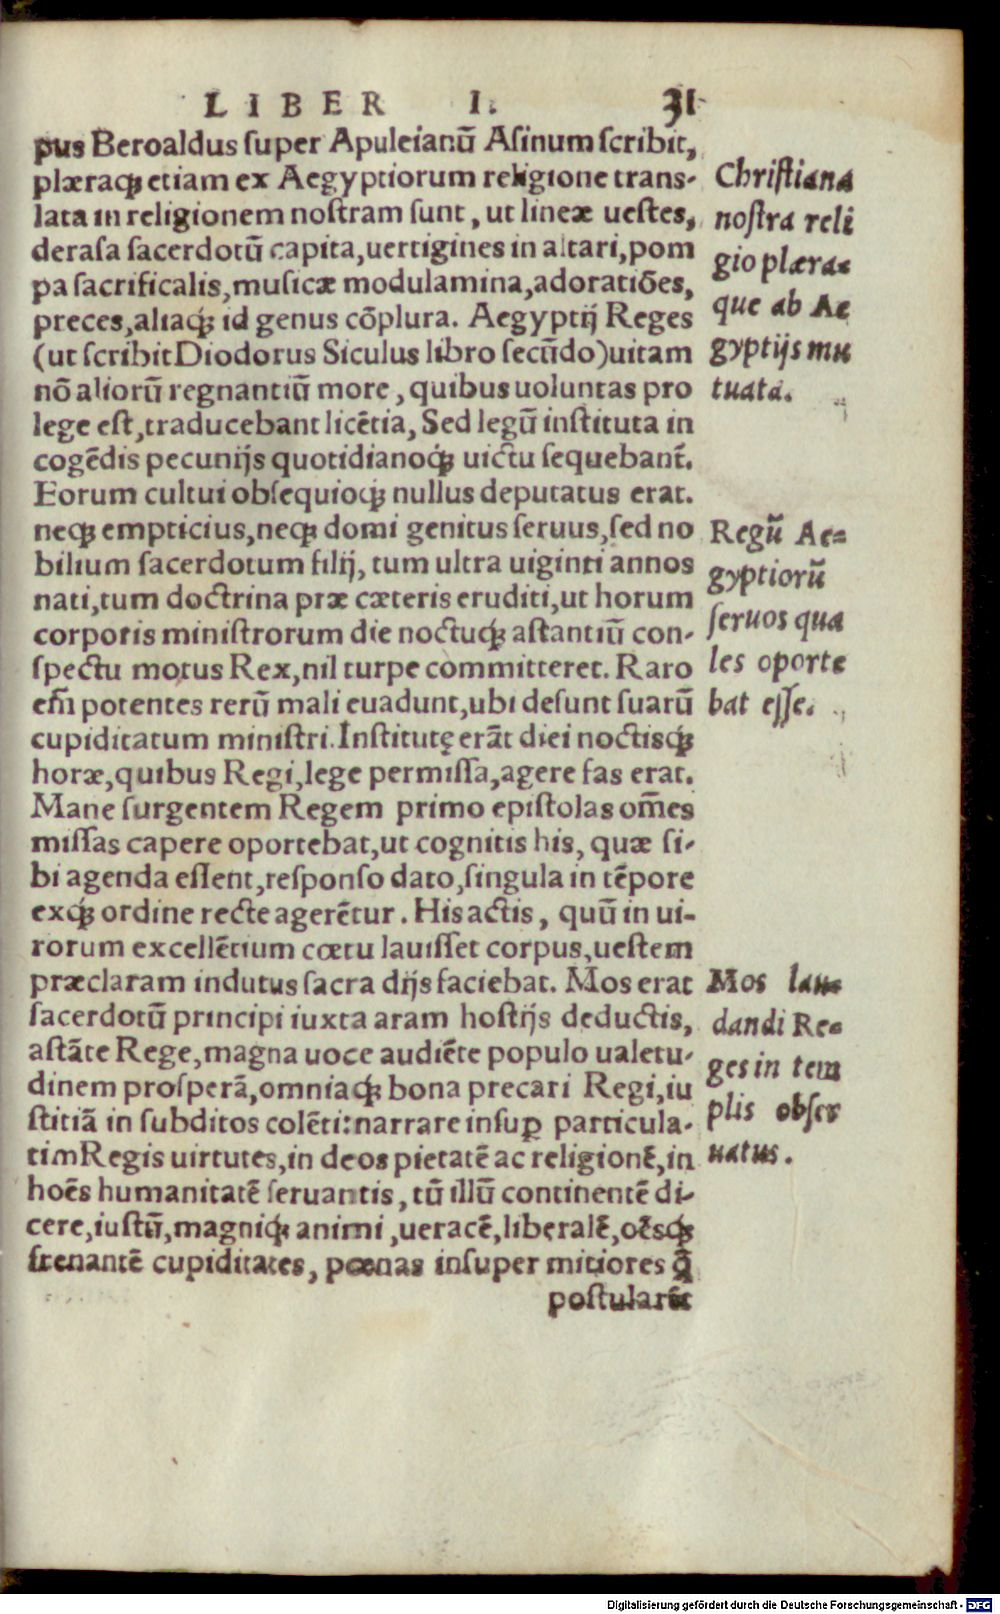 LIBER I. 31
pus Beroaldus super Apuleianū Asinum scribit,
plæraqꝫ etiam ex Aegyptiorum religione trans-
lata in religionem nostram sunt, ut lineæ uestes,
derasa sacerdotū capita, uertigines in altari, pom
pa sacrificalis, musicæ modulamina, adoratiōes,
preces, aliaqꝫ id genus cōplura. Aegyptij Reges
(ut scribit Diodorus Siculus libro secūdo) uitam
nō aliorū regnantiū more, quibus uoluntas pro
lege est, traducebant licētia, Sed legū instituta in
cogēdis pecunijs quotidianoqꝫ uictu sequebant̄.
Eorum cultui obsequioqꝫ nullus deputatus erat.
neqꝫ empticius, neqꝫ domi genitus seruus, sed no
bilium sacerdotum filij, tum ultra uiginti annos
nati, tum doctrina præ cæteris eruditi, ut horum
corporis ministrorum die noctuqꝫ astantiū con-
spectu motus Rex, nil turpe committeret. Raro
em̄ potentes rerū mali euadunt, ubi desunt suarū
cupiditatum ministri. Institutę erāt diei noctisqꝫ
horæ, quibus Regi, lege permissa, agere fas erat.
Mane surgentem Regem primo epistolas om̄es
missas capere oportebat, ut cognitis his, quæ si-
bi agenda essent, responso dato, singula in tēpore
exqꝫ ordine recte agerētur. His actis, quū in ui-
rorum excellētium cœtu lauisset corpus, uestem
præclaram indutus sacra dijs faciebat. Mos erat
sacerdotū principi iuxta aram hostijs deductis,
astāte Rege, magna uoce audiēte populo ualetu-
dinem prosperā, omniaqꝫ bona precari Regi, iu
stitiā in subditos colēti: narrare insuꝑ particula-
tim Regis uirtutes, in deos pietatē ac religionē, in
hoēs humanitatē seruantis, tū illū continentē di-
cere, iustū, magniqꝫ animi, ueracē, liberalē, oēsqꝫ
frenantē cupiditates, pœnas insuper mitiores q̄
postularēt
Christiana
nostra reli
gio plæra-
que ab Ae
gyptijs mu
tuata.
Regū Ae-
gyptiorū
seruos qua
les oporte
bat esse.
Mos lau-
dandi Re-
ges in tem
plis obser
uatus.
Digitalisierung gefördert durch die Deutsche Forschungsgemeinschaft - DFG